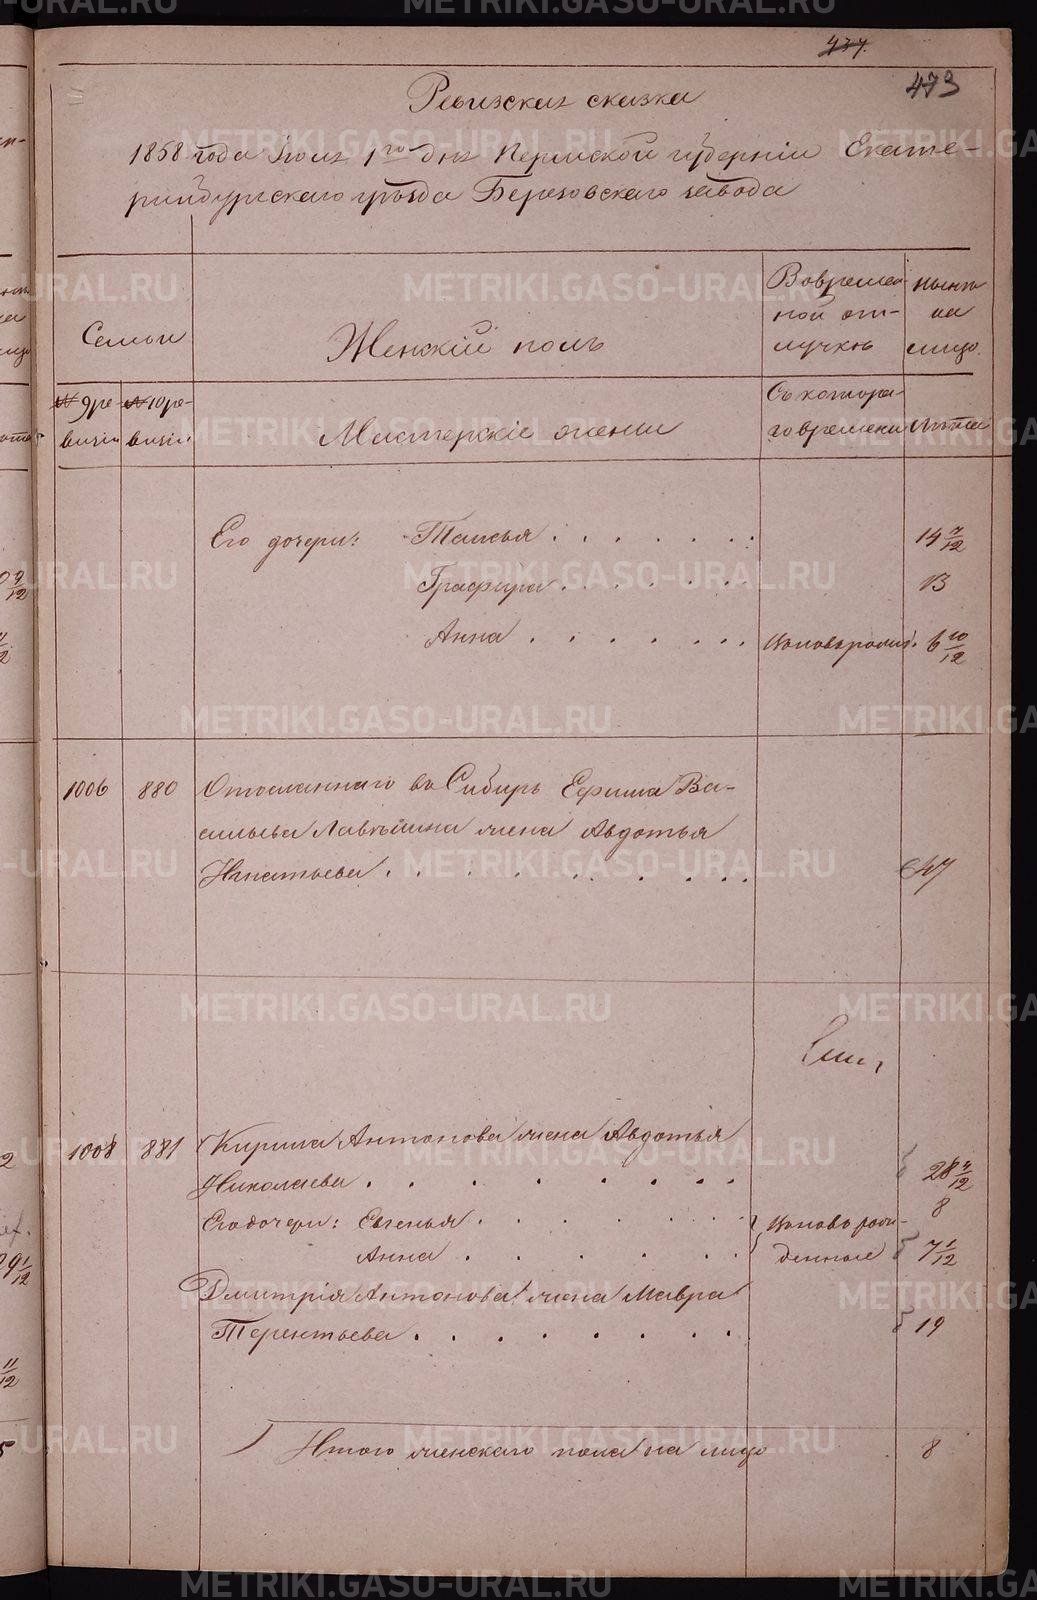 437.
473
Ревизская сказка
1858 года Іюня 1го дня Пермской губерніи Екате-
ринбургскаго уѣзда Березовскаго завода
Семьи
Женскій полъ
Во времен-
ной от-
лучкѣ
Нынѣ
на
лицо
№ 9 ре-
визіи
№ 10 ре-
визіи
Мастерскіе жены
Съ котора-
го времени
Лѣта
Его дочери: Таисья . . . . . . . 14 7/12
Графира . . . . . . . 13
Анна . . . . . . . Новорожд. 6 10/12
1006 880 Отосланнаго въ Сибирь Ефима Ва-
сильева жена Авдотья
Игнатьева . . . . . . . . . 47
1008 881 Кирила Антонова жена Авдотья
Николаева . . . . . . . . . 28
Его дочери: Евгенья . . . . . . . 8
Анна . . . . . . . 7 1/12
Дмитрія Антонова жена Мавра
Терентьева . . . . . . . . 19
Итого женскаго пола на лицо 8
METRIKI.GASO-URAL.RU